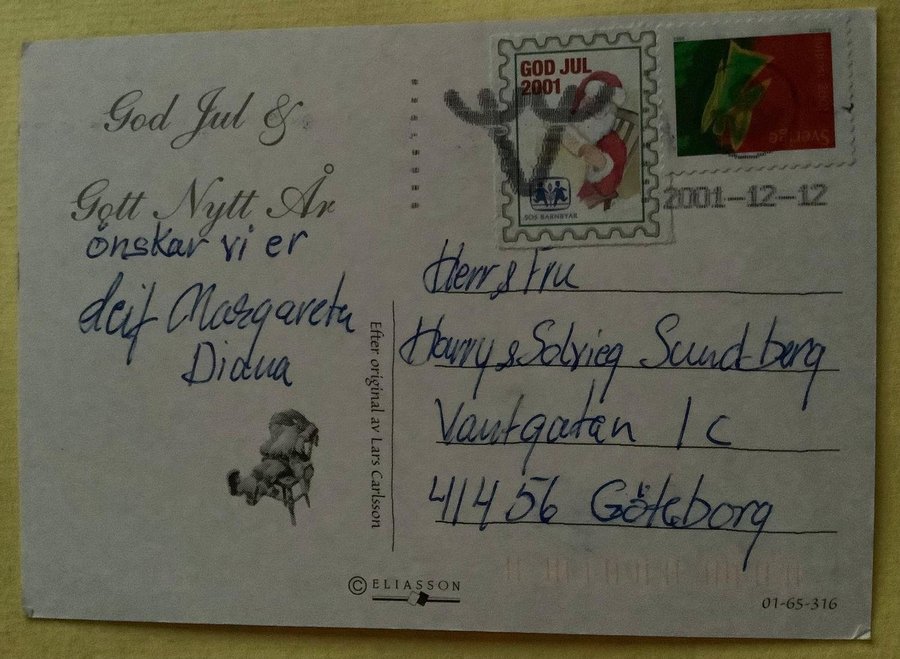 God Jul &
Gott Nytt År
önskar vi er
Leif Margareta
Diana
Efter original av Lars Carlsson
© ELIASSON
GOD JUL
2001
SOS BARNBYAR
Sverige
2001-12-12
Herr & Fru
Harry & Solvieg Sundberg
Vantgatan 1 C
41456 Göteborg
01-65-316